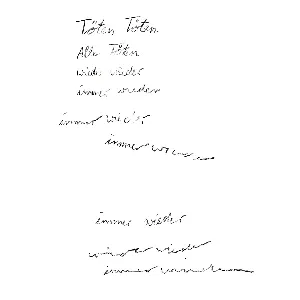 Töten Töten
Alle Töten
wieder wieder
immer wieder
immer wieder
immer
immer wieder
wieder wieder
immer